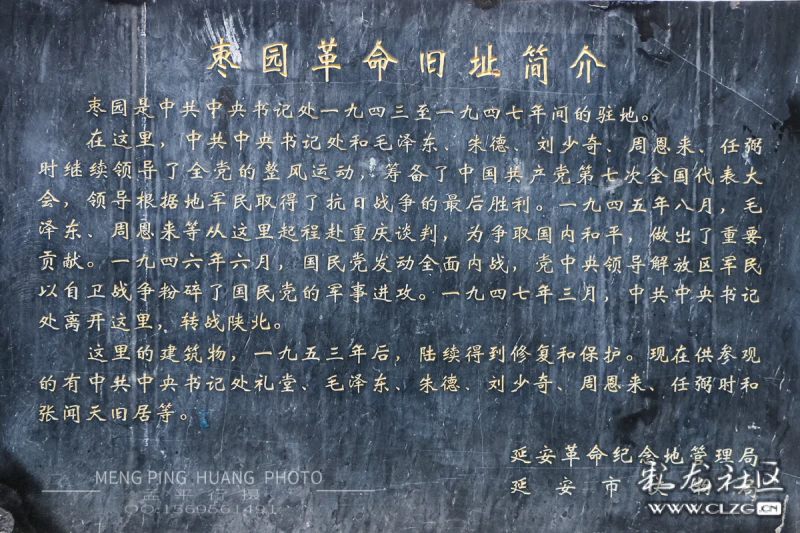 枣园革命旧址简介
枣园是中共中央书记处一九四三至一九四七年间的驻地。
在这里，中共中央书记处和毛泽东、朱德、刘少奇、周恩来、任弼
时继续领导了全党的整风运动，筹备了中国共产党第七次全国代表大
会，领导根据地军民取得了抗日战争的最后胜利。一九四五年八月，毛
泽东、周恩来等从这里起程赴重庆谈判，为争取国内和平，做出了重要
贡献。一九四六年六月，国民党发动全面内战，党中央领导解放区军民
以自卫战争粉碎了国民党的军事进攻。一九四七年三月，中共中央书记
处离开这里，转战陕北。
这里的建筑物，一九五三年后，陆续得到修复和保护。现在供参观
的有中共中央书记处礼堂、毛泽东、朱德、刘少奇、周恩来、任弼时和
张闻天旧居等。
延安革命纪念地管理局
延安市
MENG PING HUANG PHOTO
孟平行摄
QQ:1569561491
彩龙社区
WWW.CLZG.CN